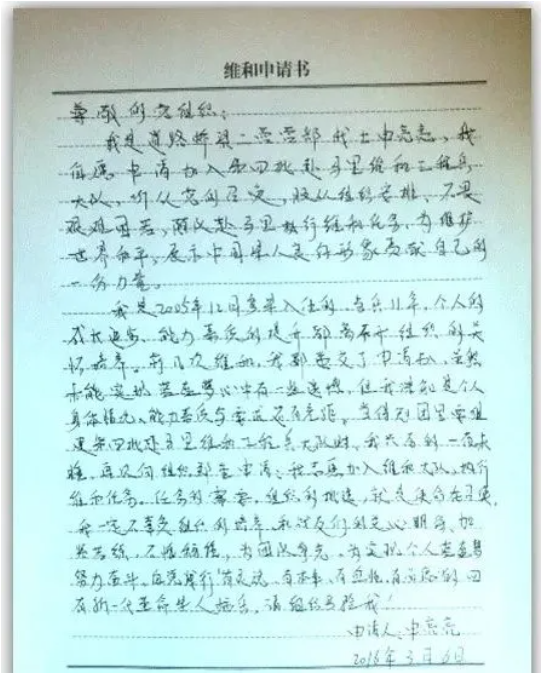 维和申请书
尊敬的党组织：
我是道路桥梁二营营部战士申亮亮，我
自愿申请加入第四批赴马里维和工程兵
大队，听从党的召唤，服从组织安排，不畏
艰难困苦，赴马里执行维和任务，为维护
世界和平、展示中国军人良好形象贡献自己的
一份力量。
我是2005年12月参军入伍的，当兵11年，个人的
成长进步、能力素质的提升都离不开组织的关
怀培养。前几次维和，我都递交了申请书，虽然
未能实现蓝盔梦心中有一些遗憾，但我清楚是个人
身体情况、能力素质与要求还有差距。当得知团里要组
建第四批赴马里维和工程兵大队时，我
再次向组织郑重申请：我志愿加入维和大队，执行
维和任务。任务的需要，组织的挑选，就是使命在召唤，
我一定不辜负组织的培养和战友们的关心期望，加
为团队争光，为实现个人蓝盔梦
努力奋斗，自觉践行有灵魂、有本事、有血性、有品德的四
有新一代革命军人，请组织考验我！
申请人：申亮亮
2016年3月6日